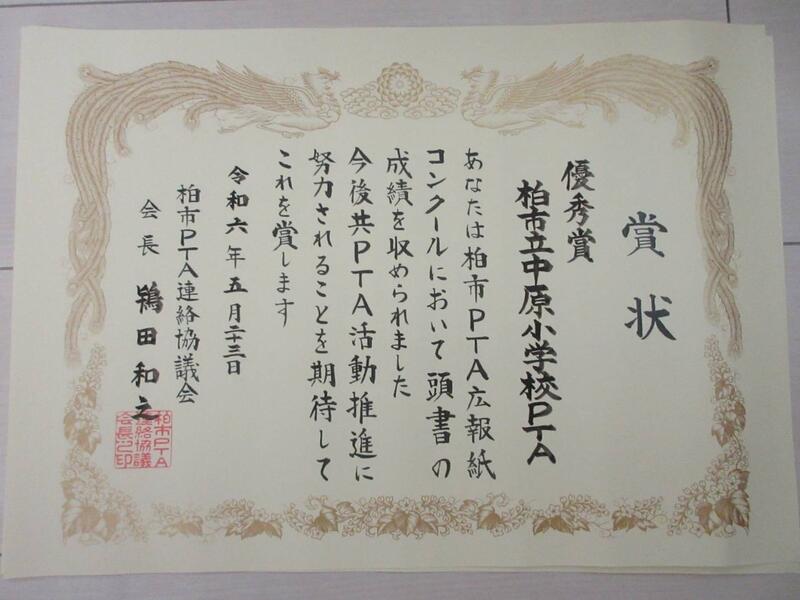 賞状
優秀賞
柏市立中原小学校PTA
あなたは柏市PTA広報紙
コンクールにおいて頭書の
成績を収められました
今後共PTA活動推進に
努力されることを期待して
これを賞します
令和六年五月二十三日
柏市PTA連絡協議会
会長 鴇田和之
柏市PTA
連絡協議
会長之印